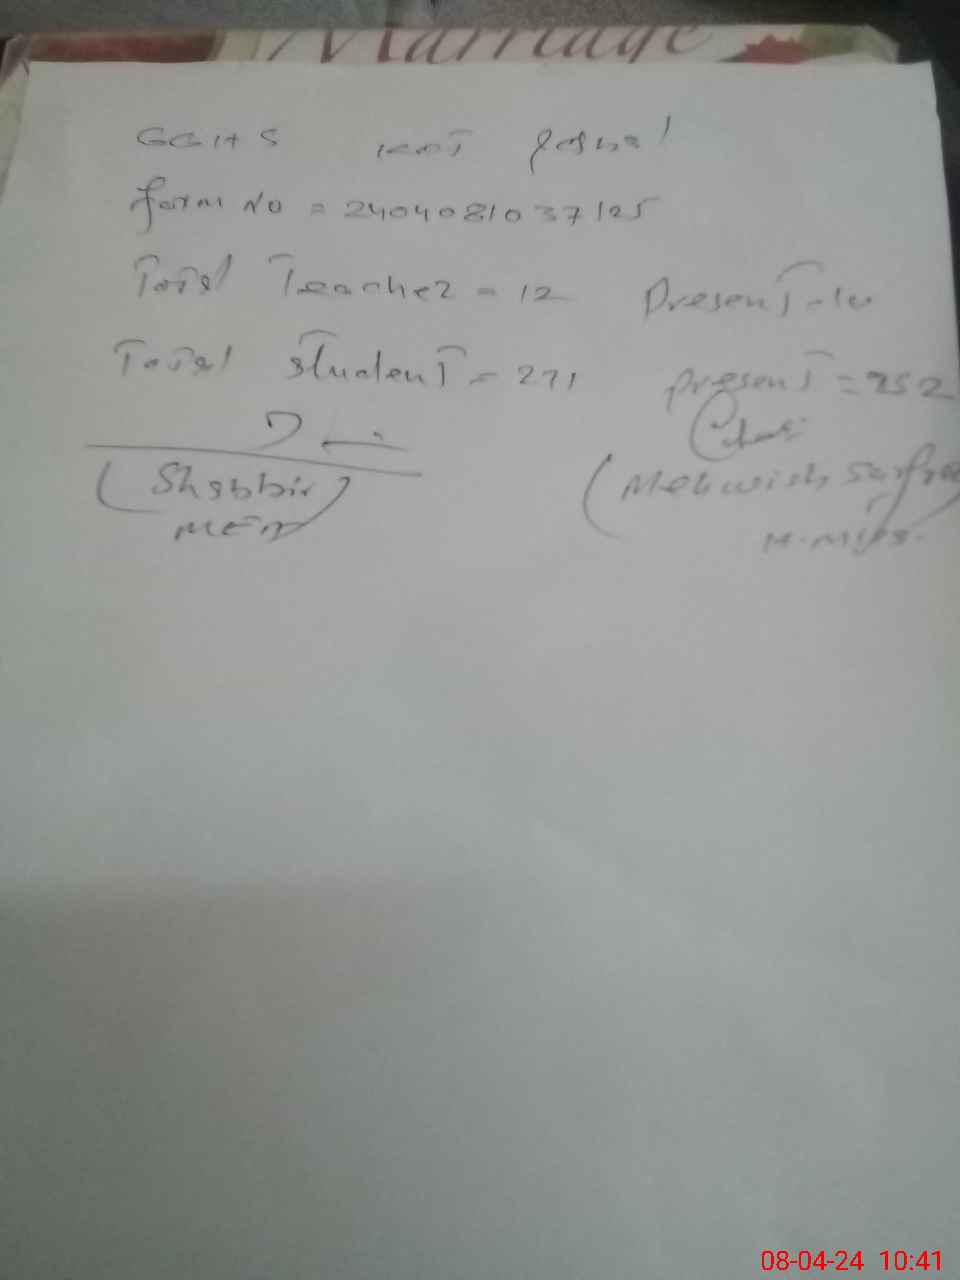 Marriage
GGHS Kot
Form No = 2404081037125
Total Teacher = 12 Present
Total Student = 271 Present = 252
(Shabbir) (Mehwish
08-04-24 10:41